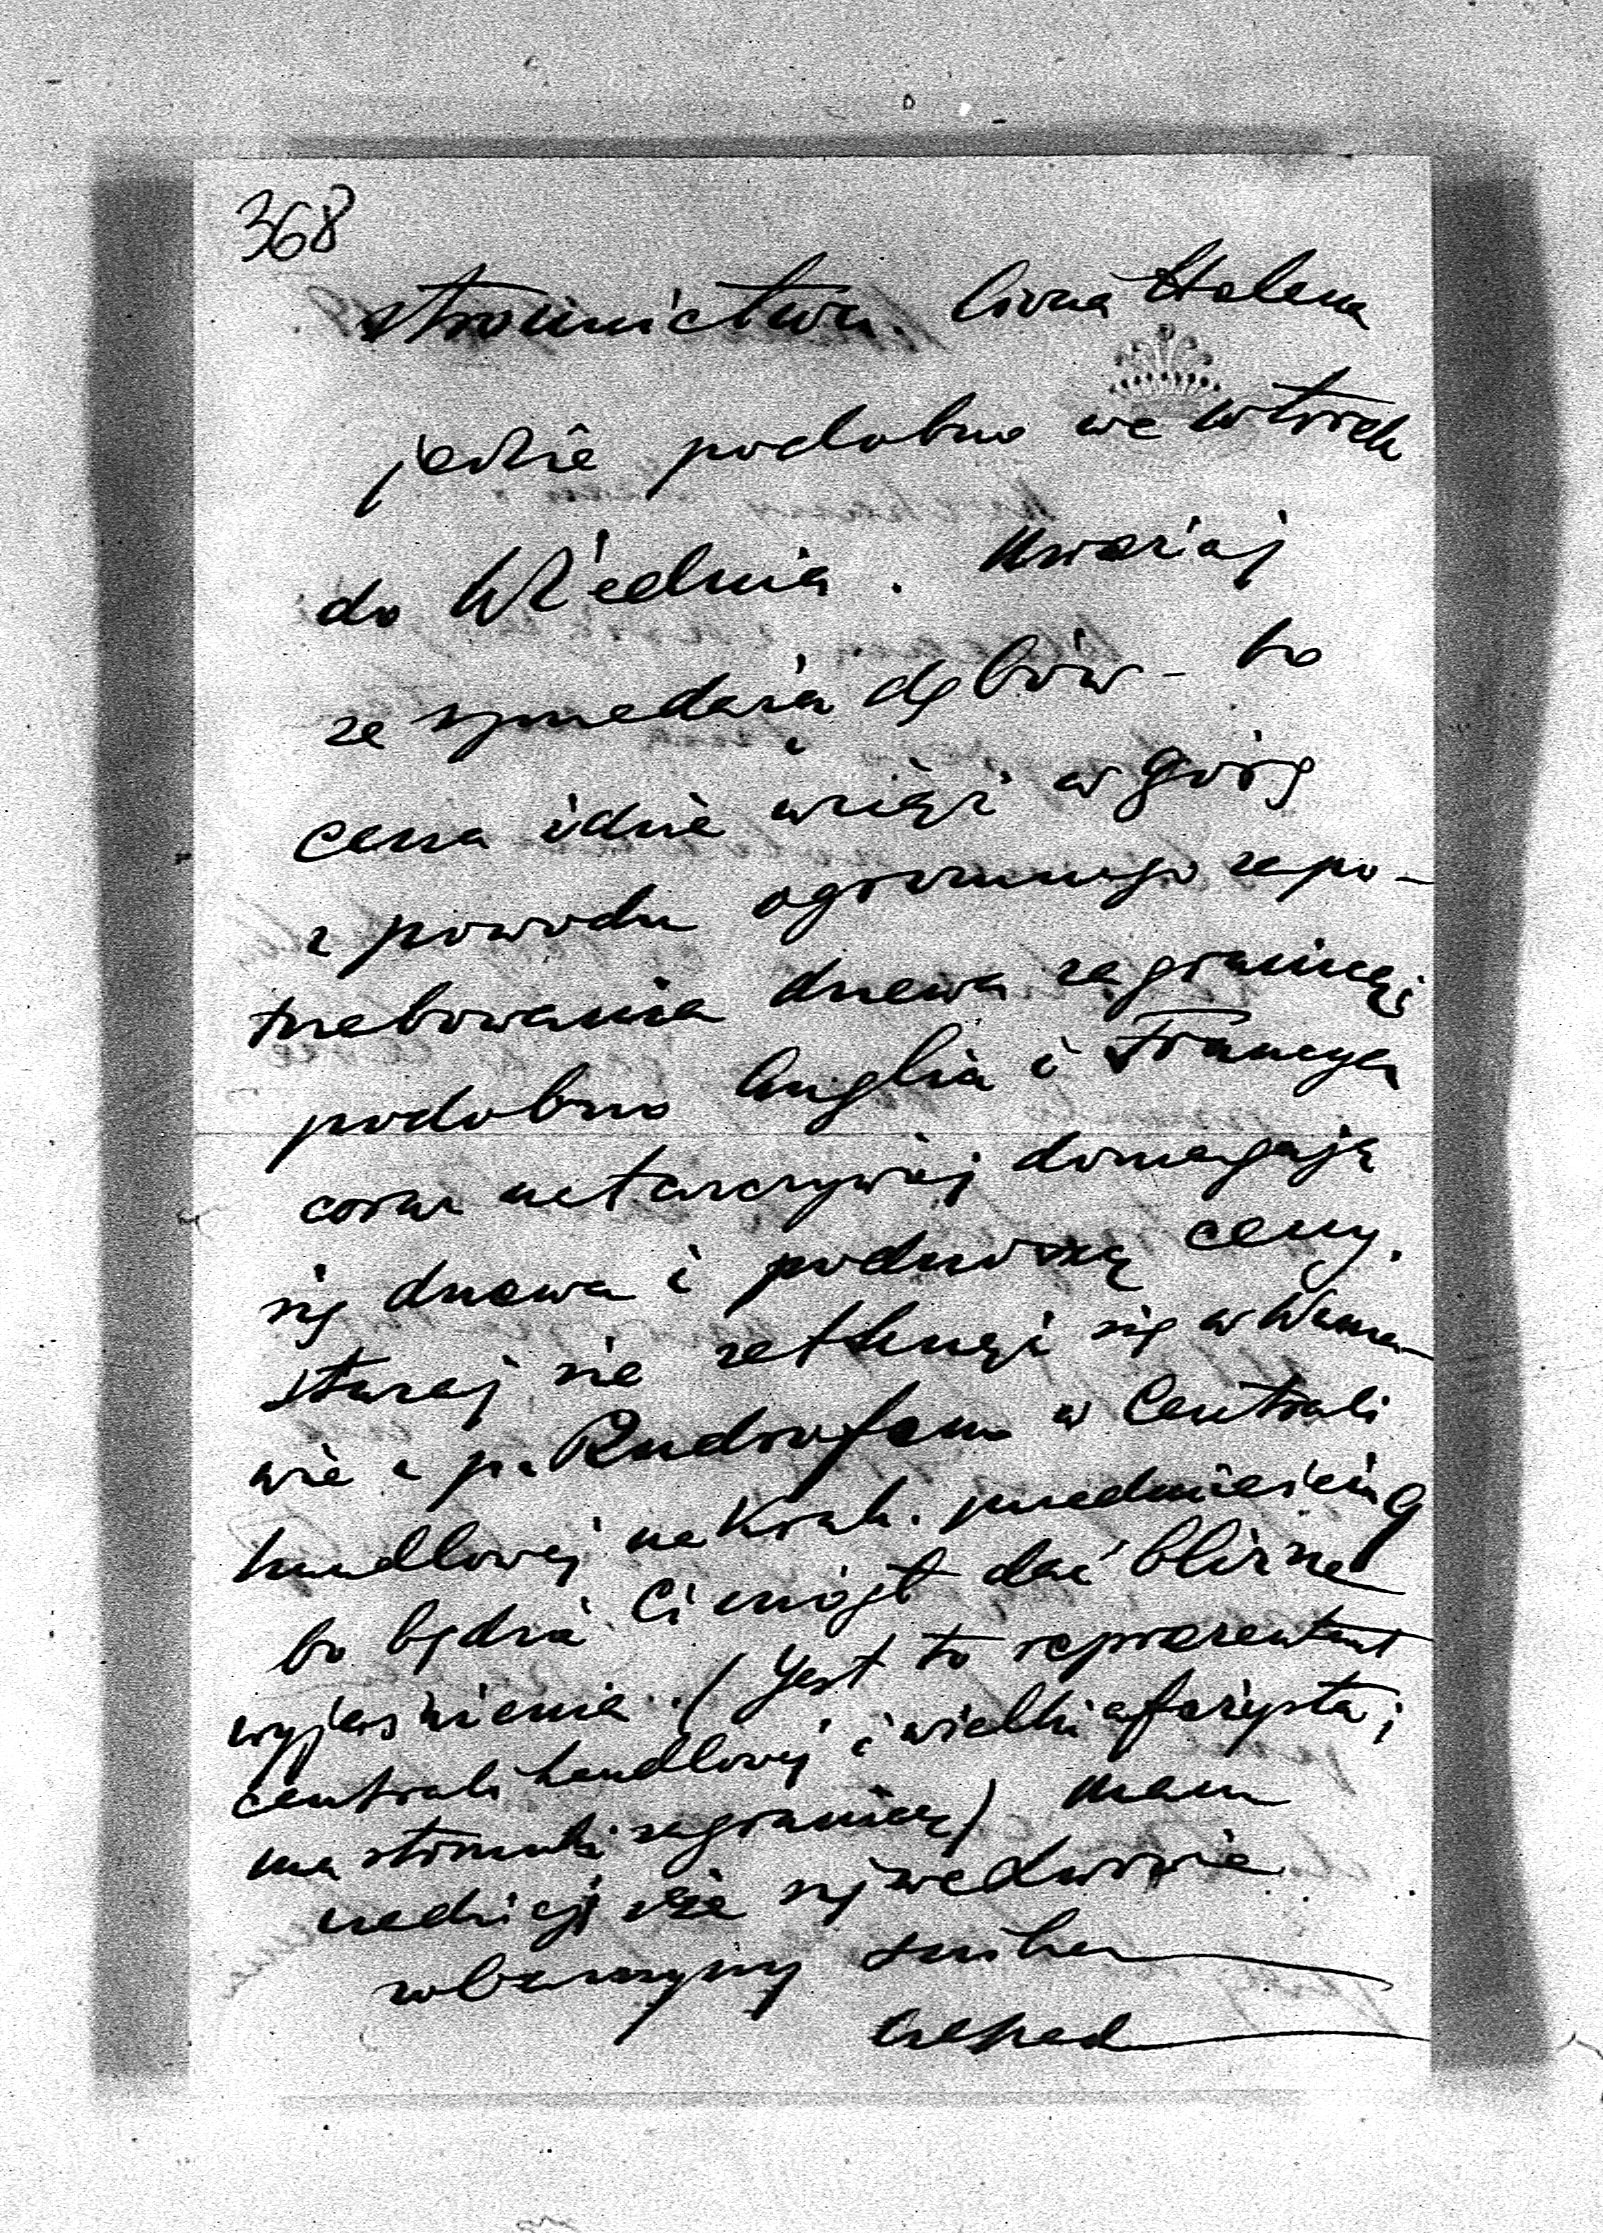 368
stronnictwa. Ciocia Helena
jedzie podobno we wtorek
do Wiednia. Uważaj
ze sprzedażą dębów – bo
cena idzie wciąż w górę
z powodu ogromnego zapo-
trzebowania drzewa zagranicą;
podobno Anglia i Francya
coraz natarczywiej domagają
się drzewa i podnoszą ceny.
Staraj się zetknąć się w Warsza-
wie z p. Rudrofem w Centrali
handlowej na Krak. przedmieściu 9
bo będzie Ci mógł dać bliższe
wyjaśnienie. (Jest to reprezentant
centrali handlowej i wielki aferzysta;
ma stosunki zagranicą) Mam
nadzieję że się we dworze
zobaczymy